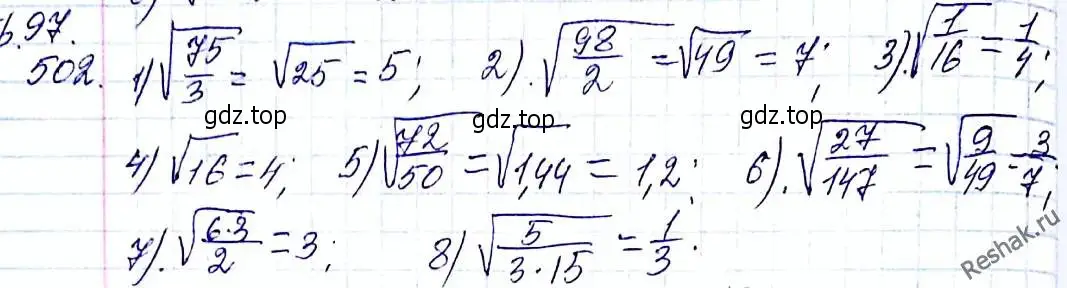 6.97.
502. 1) √75/3 = √25 = 5; 2). √98/2 = √49 = 7; 3). √1/16 = 1/4;
gdz.top gdz.top gdz.top
4) √16 = 4; 5) √72/50 = √1,44 = 1,2; 6). √27/147 = √9/49 = 3/7;
7). √6·3/2 = 3; 8) √5/3·15 = 1/3.
Reshak.ru